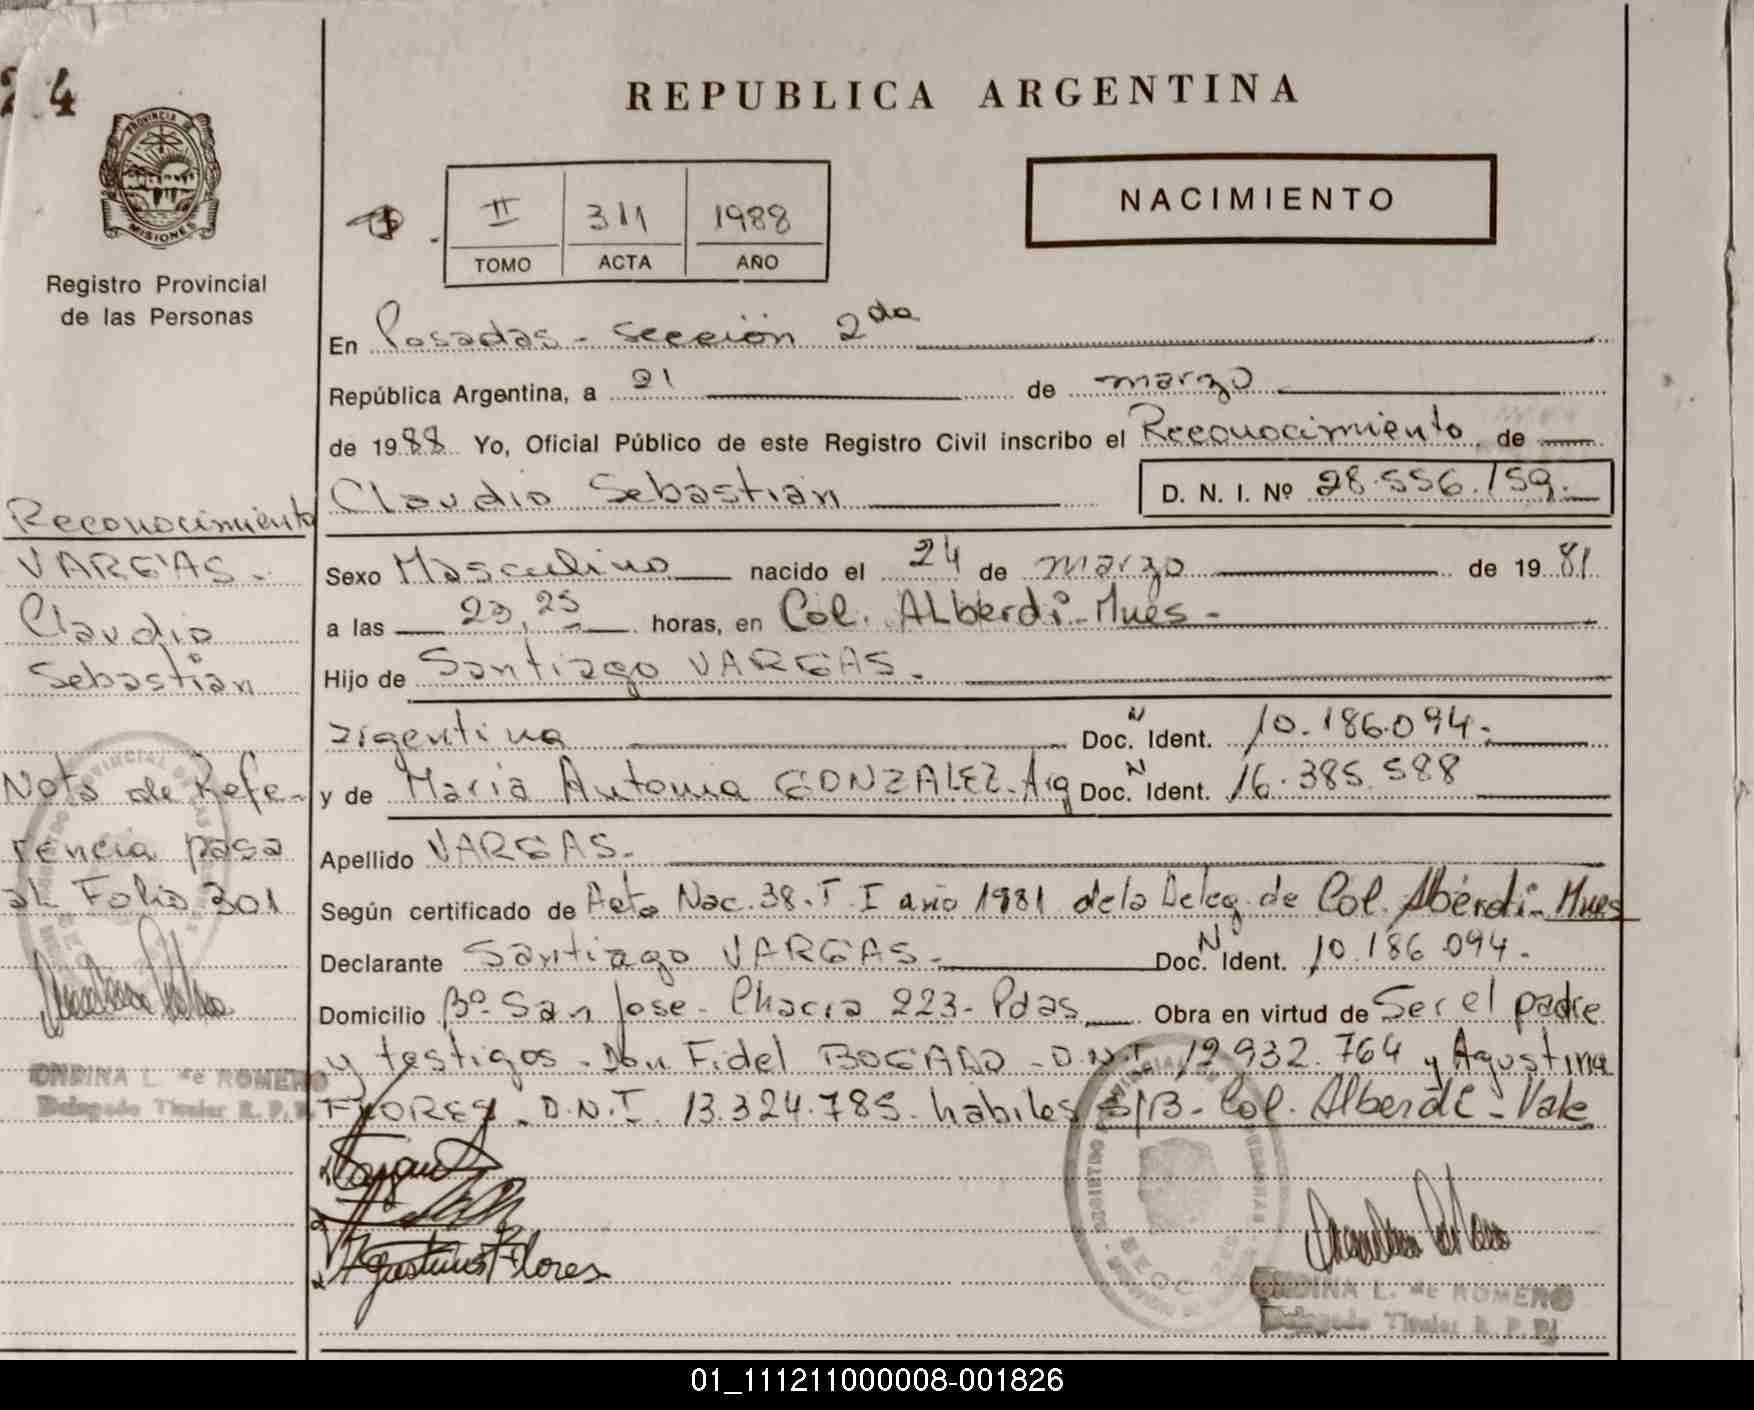 24
PROVINCIA DE
MISIONES
Registro Provincial
de las Personas
REPUBLICA ARGENTINA
NACIMIENTO
II 311 1988
TOMO ACTA AÑO
En Posadas - sección 2da
República Argentina, a 21 de marzo
de 1988 Yo, Oficial Público de este Registro Civil inscribo el Reconocimiento de
Claudio Sebastián D. N. I. Nº 28.556.159.
Sexo Masculino nacido el 24 de marzo de 1981
a las 23,25 horas, en Col. ALberdi-Mnes-
Hijo de Santiago VARGAS.
argentina Doc. N Ident. 10.186.094.
y de Maria Antonia GONZALEZ-Arg Doc. N Ident. 16.385.588
Apellido VARGAS.
Según certificado de Acta Nac. 38. T. I año 1981 de la Deleg. de Col. Alberdi-Mnes
Declarante Santiago VARGAS. Doc. N Ident. 10.186.094.
Domicilio Bº San Jose - Chacra 223 - Pdas Obra en virtud de Ser el padre
y testigos - Don Fidel BOGADO - D.N.I. 12.932.764 y Agustina
FLORES. D.N.I. 13.324.785. habiles S/B- Col. Alberdi - Vale
Agustina Flores
ONDINA L. de ROMERO
Delegado Titular R. P. P.
Reconocimiento
VARGAS.
Claudio
Sebastián
Nota de Refe-
rencia pasa
al Folio 301
ONDINA L. de ROMERO
Delegado Titular R. P. P.
01_111211000008-001826